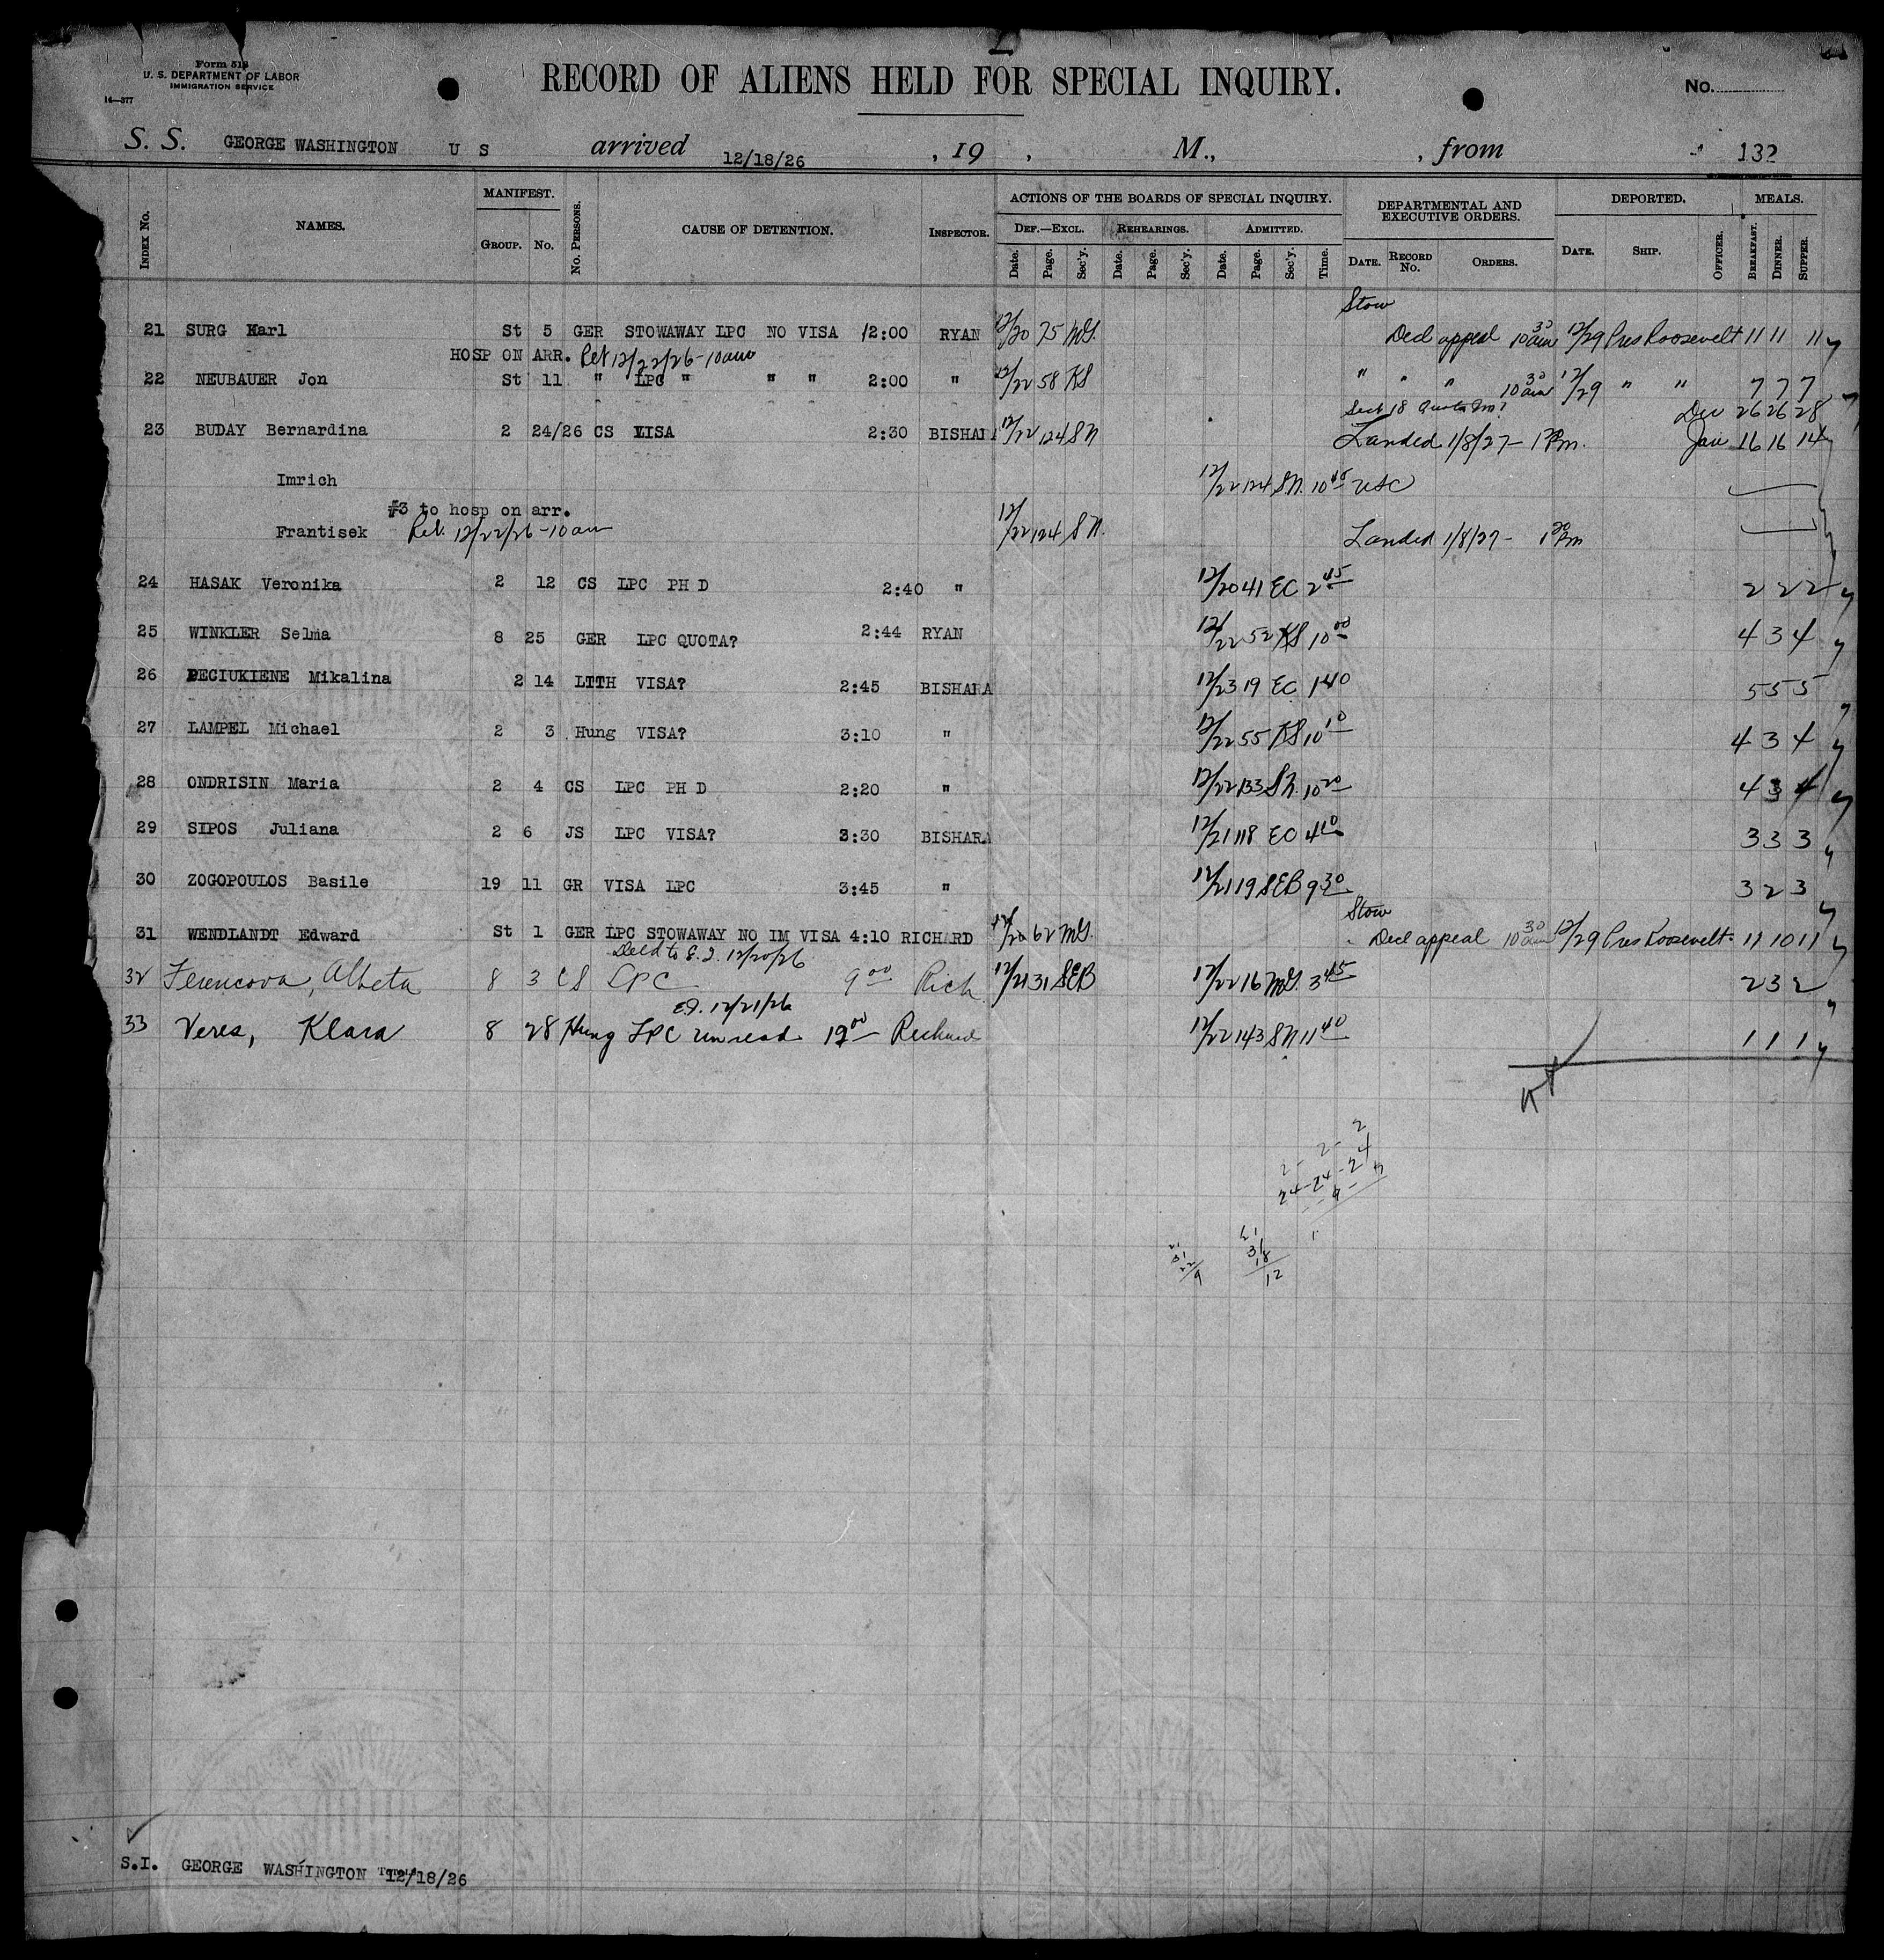 Form 518
U. S. DEPARTMENT OF LABOR
IMMIGRATION SERVICE
14—377
RECORD OF ALIENS HELD FOR SPECIAL INQUIRY.
No.
S. S. GEORGE WASHINGTON U S arrived 12/18/26 , 19 , M., , from 132
INDEX No. NAMES. MANIFEST. GROUP. No. No. PERSONS. CAUSE OF DETENTION. INSPECTOR. ACTIONS OF THE BOARDS OF SPECIAL INQUIRY. DEPARTMENTAL AND EXECUTIVE ORDERS. DEPORTED. MEALS.
DEF.—EXCL. REHEARINGS. ADMITTED.
Date. Page. Sec'y. Date. Page. Sec'y. Date. Page. Sec'y. Time. DATE. RECORD No. ORDERS. DATE. SHIP. OFFICER. BREAKFAST. DINNER. SUPPER.
Stow
21 SURG Karl St 5 GER STOWAWAY LPC NO VISA 12:00 RYAN 12/20 75 MG. Decl appeal 10 30 am 12/29 Pres Roosevelt 11 11 11
HOSP ON ARR. Ret 12/22/26 - 10 am
22 NEUBAUER Jon St 11 " LPC " " " 2:00 " 12/22 58 KS " " " 10 30 am 12/29 " " 7 7 7
Sect 18 Dec 26 26 28
23 BUDAY Bernardina 2 24/26 CS VISA 2:30 BISHARA 12/22 124 SN Landed 1/8/27 - 1 Pm. Jan 16 16 14
Imrich 12/22 124 SN. 10 45 USC
#3 to hosp on arr.
Frantisek Rel. 12/22/26 - 10 am 12/22 124 SN. Landed 1/8/27 - 1 30 Pm
24 HASAK Veronika 2 12 CS LPC PH D 2:40 " 12/20 41 EC 2 45 2 2 2
25 WINKLER Selma 8 25 GER LPC QUOTA? 2:44 RYAN 12/22 52 KS 10 00 4 3 4
26 PECIUKIENE Mikalina 2 14 LITH VISA? 2:45 BISHARA 12/23 19 EC 1 40 5 5 5
27 LAMPEL Michael 2 3 Hung VISA? 3:10 " 12/22 55 KS 10 10 4 3 4
28 ONDRISIN Maria 2 4 CS LPC PH D 2:20 " 12/22 133 SN. 10 20 4 3 4
29 SIPOS Juliana 2 6 JS LPC VISA? 3:30 BISHARA 12/21 118 EC 4 10 3 3 3
30 ZOGOPOULOS Basile 19 11 GR VISA LPC 3:45 " 12/21 19 SEB 9 30 3 2 3
Stow
31 WENDLANDT Edward St 1 GER LPC STOWAWAY NO IM VISA 4:10 RICHARD 12/20 62 MG. Decl appeal 10 30 am 12/29 Pres Roosevelt. 11 10 11
Decd to E.I. 12/20/26
32 Ferencova, Albeta 8 3 CS LPC 9 00 Rich 12/21 31 SEB 12/22 16 MG. 3 45 2 3 2
E.I. 12/21/26
33 Veres, Klara 8 28 Hung LPC 12 00 Richard 12/22 143 SN 11 40 1 1 1
2 - 2 - 2
24 - 24 - 24
31
18
12
S.I. GEORGE WASHINGTON 12/18/26